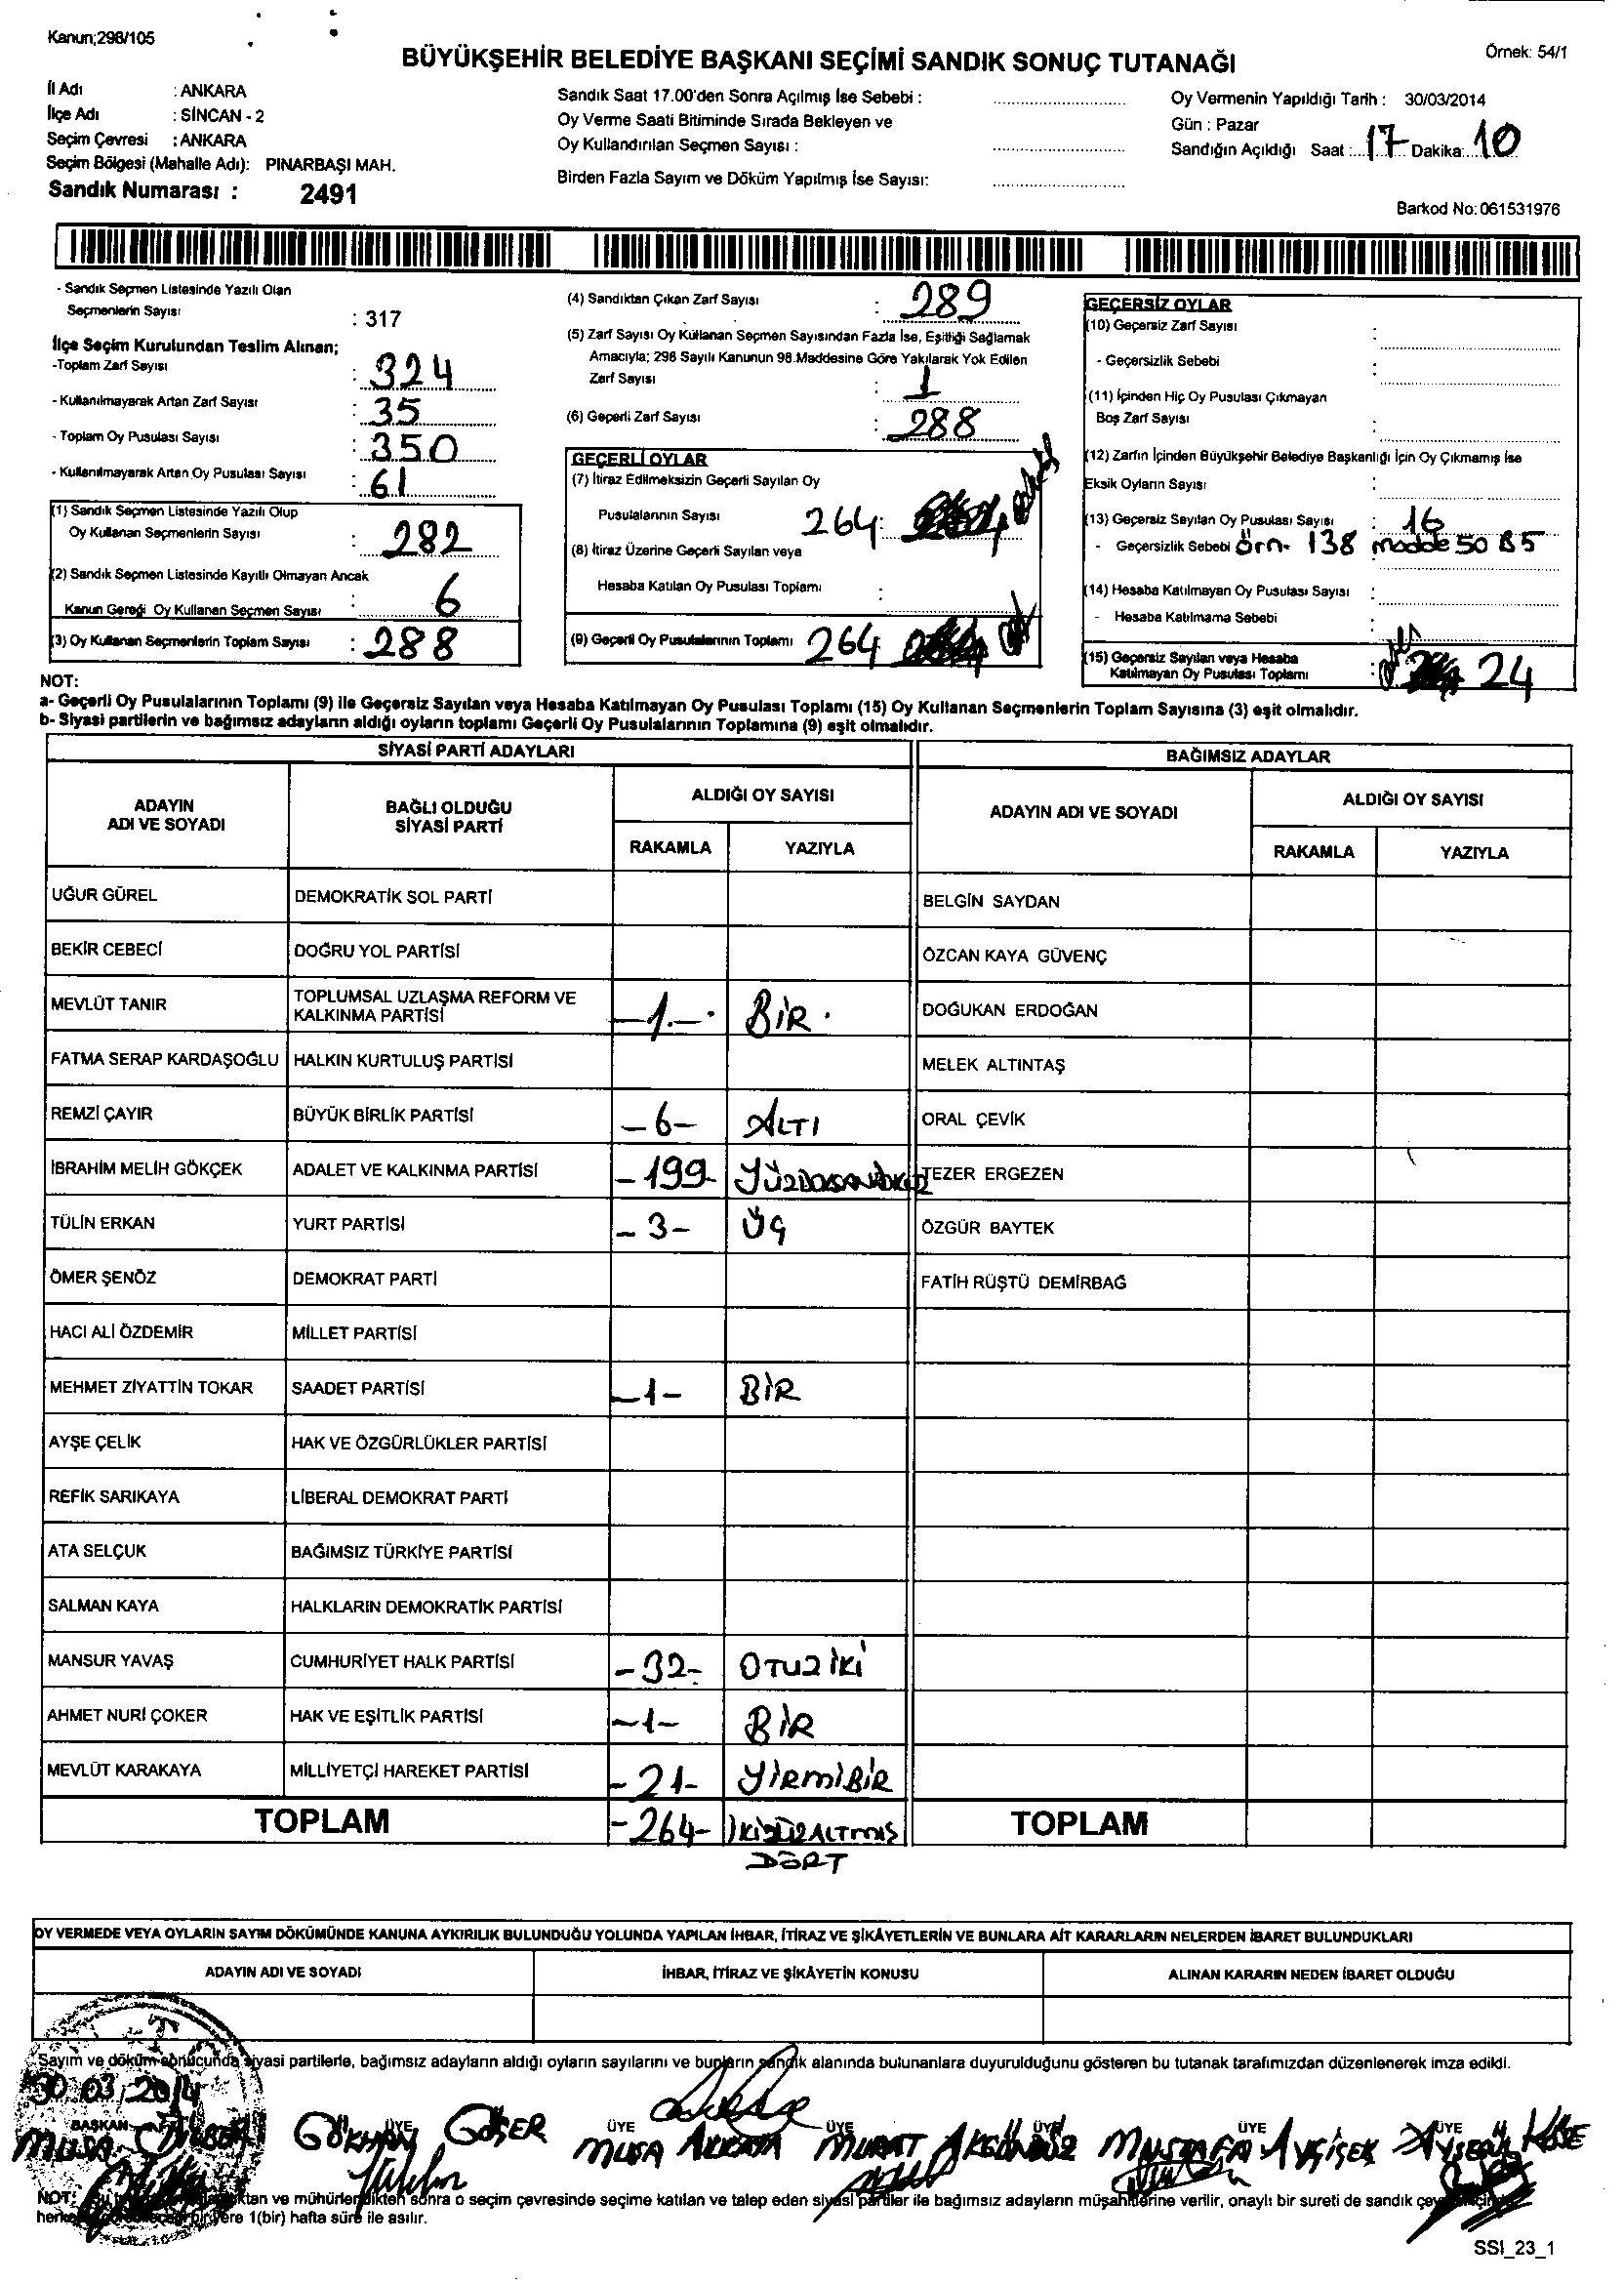 Kanun;298/105
Örnek: 54/1
BÜYÜKŞEHİR BELEDİYE BAŞKANI SEÇİMİ SANDIK SONUÇ TUTANAĞI
İl Adı : ANKARA
İlçe Adı : SİNCAN - 2
Seçim Çevresi : ANKARA
Seçim Bölgesi (Mahalle Adı): PINARBAŞI MAH.
Sandık Numarası : 2491
Sandık Saat 17.00'den Sonra Açılmış İse Sebebi :
Oy Verme Saati Bitiminde Sırada Bekleyen ve
Oy Kullandırılan Seçmen Sayısı :
Birden Fazla Sayım ve Döküm Yapılmış İse Sayısı:
Oy Vermenin Yapıldığı Tarih : 30/03/2014
Gün : Pazar
Sandığın Açıldığı Saat : 17 Dakika: 10
Barkod No: 061531976
- Sandık Seçmen Listesinde Yazılı Olan
Seçmenlerin Sayısı : 317
İlçe Seçim Kurulundan Teslim Alınan;
-Toplam Zarf Sayısı : 324
- Kullanılmayarak Artan Zarf Sayısı : 35
- Toplam Oy Pusulası Sayısı : 350
- Kullanılmayarak Artan Oy Pusulası Sayısı : 61
(1) Sandık Seçmen Listesinde Yazılı Olup
Oy Kullanan Seçmenlerin Sayısı : 282
(2) Sandık Seçmen Listesinde Kayıtlı Olmayan Ancak
Kanun Gereği Oy Kullanan Seçmen Sayısı : 6
(3) Oy Kullanan Seçmenlerin Toplam Sayısı : 288
(4) Sandıktan Çıkan Zarf Sayısı : 289
(5) Zarf Sayısı Oy Kullanan Seçmen Sayısından Fazla İse, Eşitliği Sağlamak
Amacıyla; 298 Sayılı Kanunun 98.Maddesine Göre Yakılarak Yok Edilen
Zarf Sayısı : 1
(6) Geçerli Zarf Sayısı : 288
GEÇERLİ OYLAR
(7) İtiraz Edilmeksizin Geçerli Sayılan Oy
Pusulalarının Sayısı 264
(8) İtiraz Üzerine Geçerli Sayılan veya
Hesaba Katılan Oy Pusulası Toplamı :
(9) Geçerli Oy Pusulalarının Toplamı 264
GEÇERSİZ OYLAR
(10) Geçersiz Zarf Sayısı :
- Geçersizlik Sebebi :
(11) İçinden Hiç Oy Pusulası Çıkmayan
Boş Zarf Sayısı :
(12) Zarfın İçinden Büyükşehir Belediye Başkanlığı İçin Oy Çıkmamış İse
Eksik Oyların Sayısı :
(13) Geçersiz Sayılan Oy Pusulası Sayısı : 16
- Geçersizlik Sebebi Örn- 138 madde 50 B5
(14) Hesaba Katılmayan Oy Pusulası Sayısı :
- Hesaba Katılmama Sebebi :
(15) Geçersiz Sayılan veya Hesaba
Katılmayan Oy Pusulası Toplamı : 24
NOT:
a- Geçerli Oy Pusulalarının Toplamı (9) ile Geçersiz Sayılan veya Hesaba Katılmayan Oy Pusulası Toplamı (15) Oy Kullanan Seçmenlerin Toplam Sayısına (3) eşit olmalıdır.
b- Siyasi partilerin ve bağımsız adayların aldığı oyların toplamı Geçerli Oy Pusulalarının Toplamına (9) eşit olmalıdır.
SİYASİ PARTİ ADAYLARI
BAĞIMSIZ ADAYLAR
ADAYIN ADI VE SOYADI
BAĞLI OLDUĞU SİYASİ PARTİ
ALDIĞI OY SAYISI
RAKAMLA YAZIYLA
ADAYIN ADI VE SOYADI
ALDIĞI OY SAYISI
RAKAMLA YAZIYLA
UĞUR GÜREL DEMOKRATİK SOL PARTİ BELGİN SAYDAN
BEKİR CEBECİ DOĞRU YOL PARTİSİ ÖZCAN KAYA GÜVENÇ
MEVLÜT TANIR TOPLUMSAL UZLAŞMA REFORM VE KALKINMA PARTİSİ -1.- BİR DOĞUKAN ERDOĞAN
FATMA SERAP KARDAŞOĞLU HALKIN KURTULUŞ PARTİSİ MELEK ALTINTAŞ
REMZİ ÇAYIR BÜYÜK BİRLİK PARTİSİ -6- ALTI ORAL ÇEVİK
İBRAHİM MELİH GÖKÇEK ADALET VE KALKINMA PARTİSİ -199- YÜZDOKSANDOKUZ TEZER ERGEZEN
TÜLİN ERKAN YURT PARTİSİ -3- ÜÇ ÖZGÜR BAYTEK
ÖMER ŞENÖZ DEMOKRAT PARTİ FATİH RÜŞTÜ DEMİRBAĞ
HACI ALİ ÖZDEMİR MİLLET PARTİSİ
MEHMET ZİYATTİN TOKAR SAADET PARTİSİ -1- BİR
AYŞE ÇELİK HAK VE ÖZGÜRLÜKLER PARTİSİ
REFİK SARIKAYA LİBERAL DEMOKRAT PARTİ
ATA SELÇUK BAĞIMSIZ TÜRKİYE PARTİSİ
SALMAN KAYA HALKLARIN DEMOKRATİK PARTİSİ
MANSUR YAVAŞ CUMHURİYET HALK PARTİSİ -32- OTUZ İKİ
AHMET NURİ ÇOKER HAK VE EŞİTLİK PARTİSİ -1- BİR
MEVLÜT KARAKAYA MİLLİYETÇİ HAREKET PARTİSİ -21- YİRMİBİR
TOPLAM -264- İKİYÜZALTMIŞ TOPLAM
DÖRT
OY VERMEDE VEYA OYLARIN SAYIM DÖKÜMÜNDE KANUNA AYKIRILIK BULUNDUĞU YOLUNDA YAPILAN İHBAR, İTİRAZ VE ŞİKÂYETLERİN VE BUNLARA AİT KARARLARIN NELERDEN İBARET BULUNDUKLARI
ADAYIN ADI VE SOYADI İHBAR, İTİRAZ VE ŞİKÂYETİN KONUSU ALINAN KARARIN NEDEN İBARET OLDUĞU
Sayım ve döküm sonucunda siyasi partilerle, bağımsız adayların aldığı oyların sayılarını ve bunların sandık alanında bulunanlara duyurulduğunu gösteren bu tutanak tarafımızdan düzenlenerek imza edildi.
30.03.2014
BAŞKAN ÜYE ÜYE ÜYE ÜYE ÜYE
MUSA GÖKHAN GÖÇER MUSA AKKAYA MURAT AKGÜNDÜZ MUSTAFA AVŞİŞEK AYŞEGÜL KÖSE
NOT: mühürlendikten sonra o seçim çevresinde seçime katılan ve talep eden siyasi partiler ile bağımsız adayların müşahitlerine verilir, onaylı bir sureti de sandık
yere 1(bir) hafta süre ile asılır.
SSI_23_1